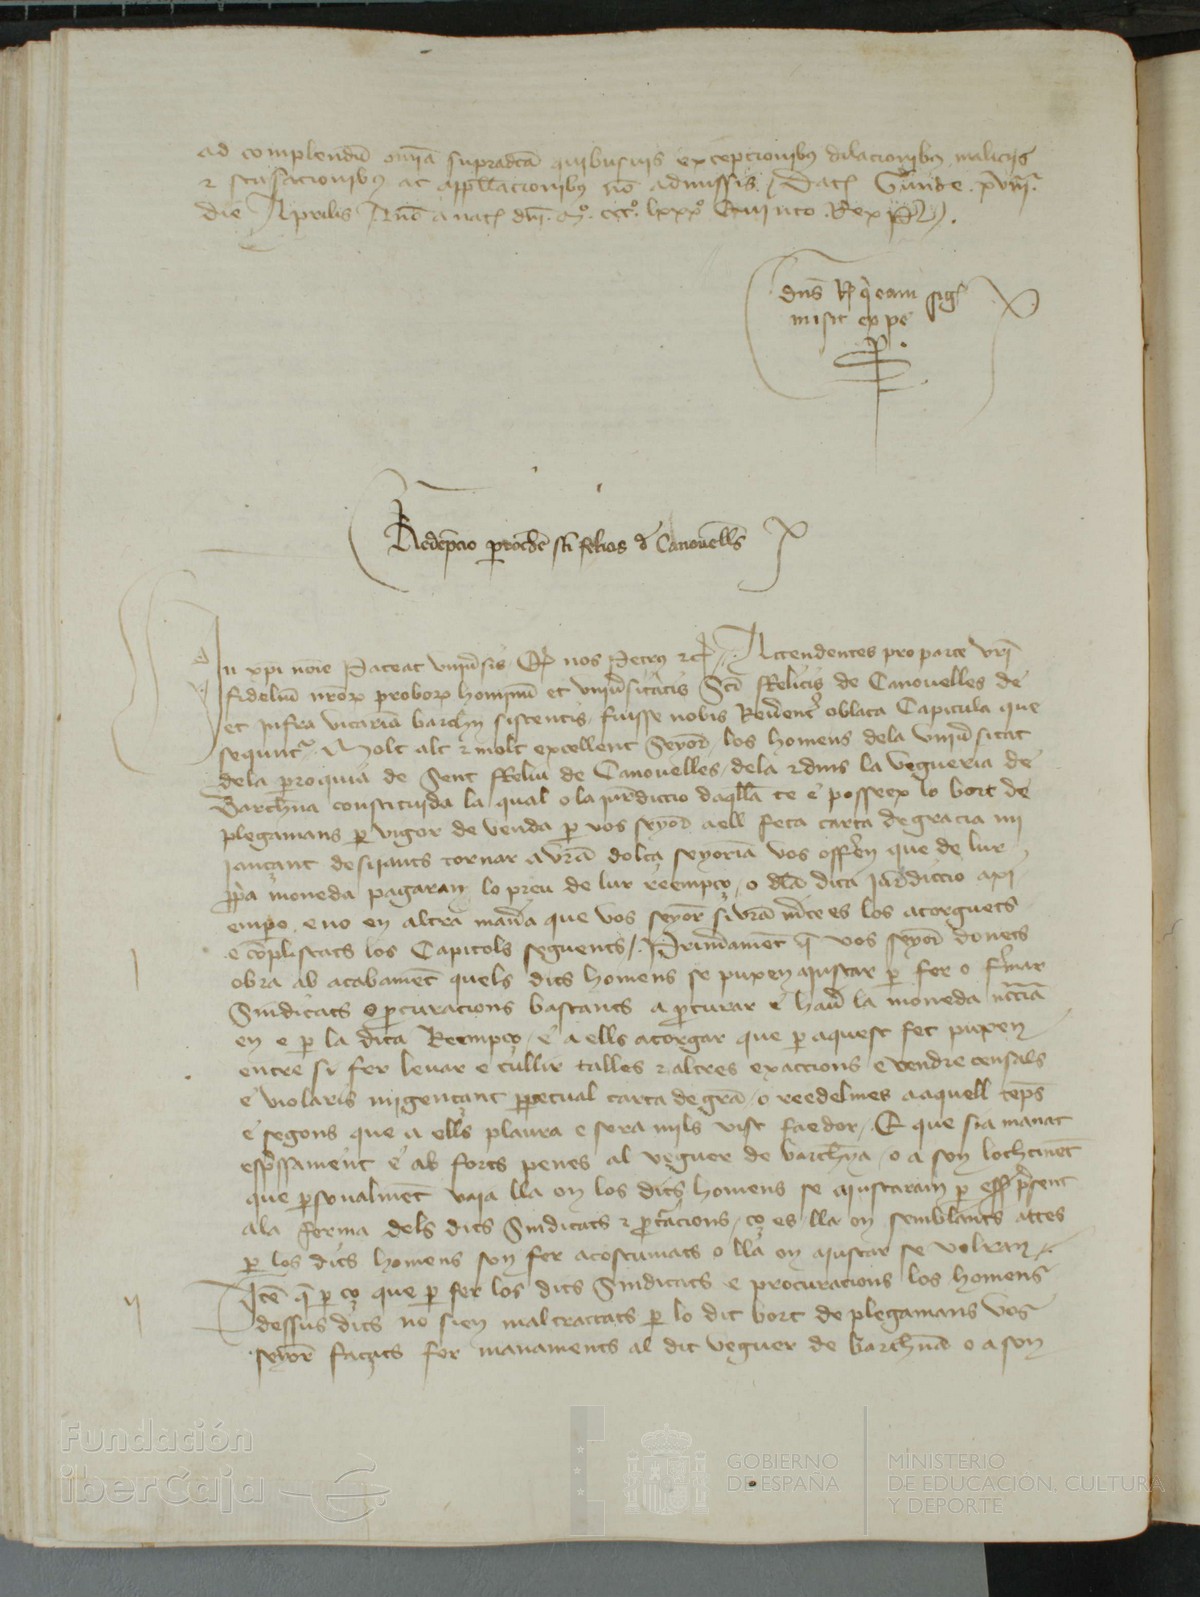 ad complendũ om̃ia supradc̃a quibusuis excepcionibus dilacionibus maliciis
⁊ scusacionibus ac appll̃acionibus nõ admissis / Dat̃ Gerunde . xviiiª
die Aprilis Anno a nat̃ dñi . Mº . cccº . lxxxº Quinto . Rex P̃ .
dñs R̃ q̃ eam sig̃
misit expe
Redẽpcio parrochĩe sc̃i felicis d̃ Canouells̃
In xp̃i noĩe Pateat vniũsis Q̃ nos Petrus ⁊c̃ / . Attendentes pro parte vr̃i
fideliũ nr̃oꝝ proboꝝ hominũ et vniũsitatis Sc̃i Felicis de Canouelles de
et infra vicariã barch̃n sistentis / fuisse nobis Reuẽnt̃ oblata Capitula que
sequnt̃ . Molt alt ⁊ molt excellent Seyor̃ / los homens dela vniũsitat
dela ꝑroquia de Sent Feliu de Canouelles / dela ⁊ dins la vegueria de
Barch̃na constituida la qual o la iur̃diccio daq̃lla te e posseex lo bort de
plegamans ꝑ vigor de venda ꝑ vos seyor̃ a ell feta carta de gracia mi
iançant desijants tornar a vr̃a dolça seyoria vos offer̃en que de lur
ꝓpa moneda pagaran lo preu de lur reempço / o dl̃a dita iur̃diccio axi
empo . e no en altra mañra que vos seyor̃ si vr̃a m̃ce es los atorguets
e cõpliscats los Capitols seguents / . Prim̃ament q̃ vos seyor̃ donets
obra ab acabament quels dits homens se puxen aiustar ꝑ fer o fermar
Sindicats o ꝓcuracions bastants a ꝓcurar e hauer̃ la moneda nec̃cãia
en e ꝑ la dita Reempço / e a ells atorgar que ꝑ aquest fet puxen
entre si fer leuar e cullir talles ⁊ altres exaccions e vendre censals
e violaris migençant ꝑpetual carta de grã / o reedelmes a aquell temps
e segons que a ells plaura e sera mils vist faedor / . E que sia manat
esp̃ssament e ab forts penes al veguer de barch̃na / o a son lochtinent
que ꝑsonalment vaja lla on los dits homens se aiustaran ꝑ esser present
ala ferma dels dits Sindicats ⁊ ꝓcũacions / ço es lla on semblants actes
ꝑ los dits homens son fer acostumats o lla on aiustar se volran / .
Item q̃ ꝑ ço que ꝑ fer los dits Sindicats e procuracions los homens
dessus dits no sien maltractats ꝑ lo dit bort de plegamans vos
seyor̃ façats fer manaments al dit veguer de barch̃na o a son
I
II
Fundación
iberCaja
GOBIERNO
DE ESPAÑA
MINISTERIO
DE EDUCACIÓN, CULTURA
Y DEPORTE